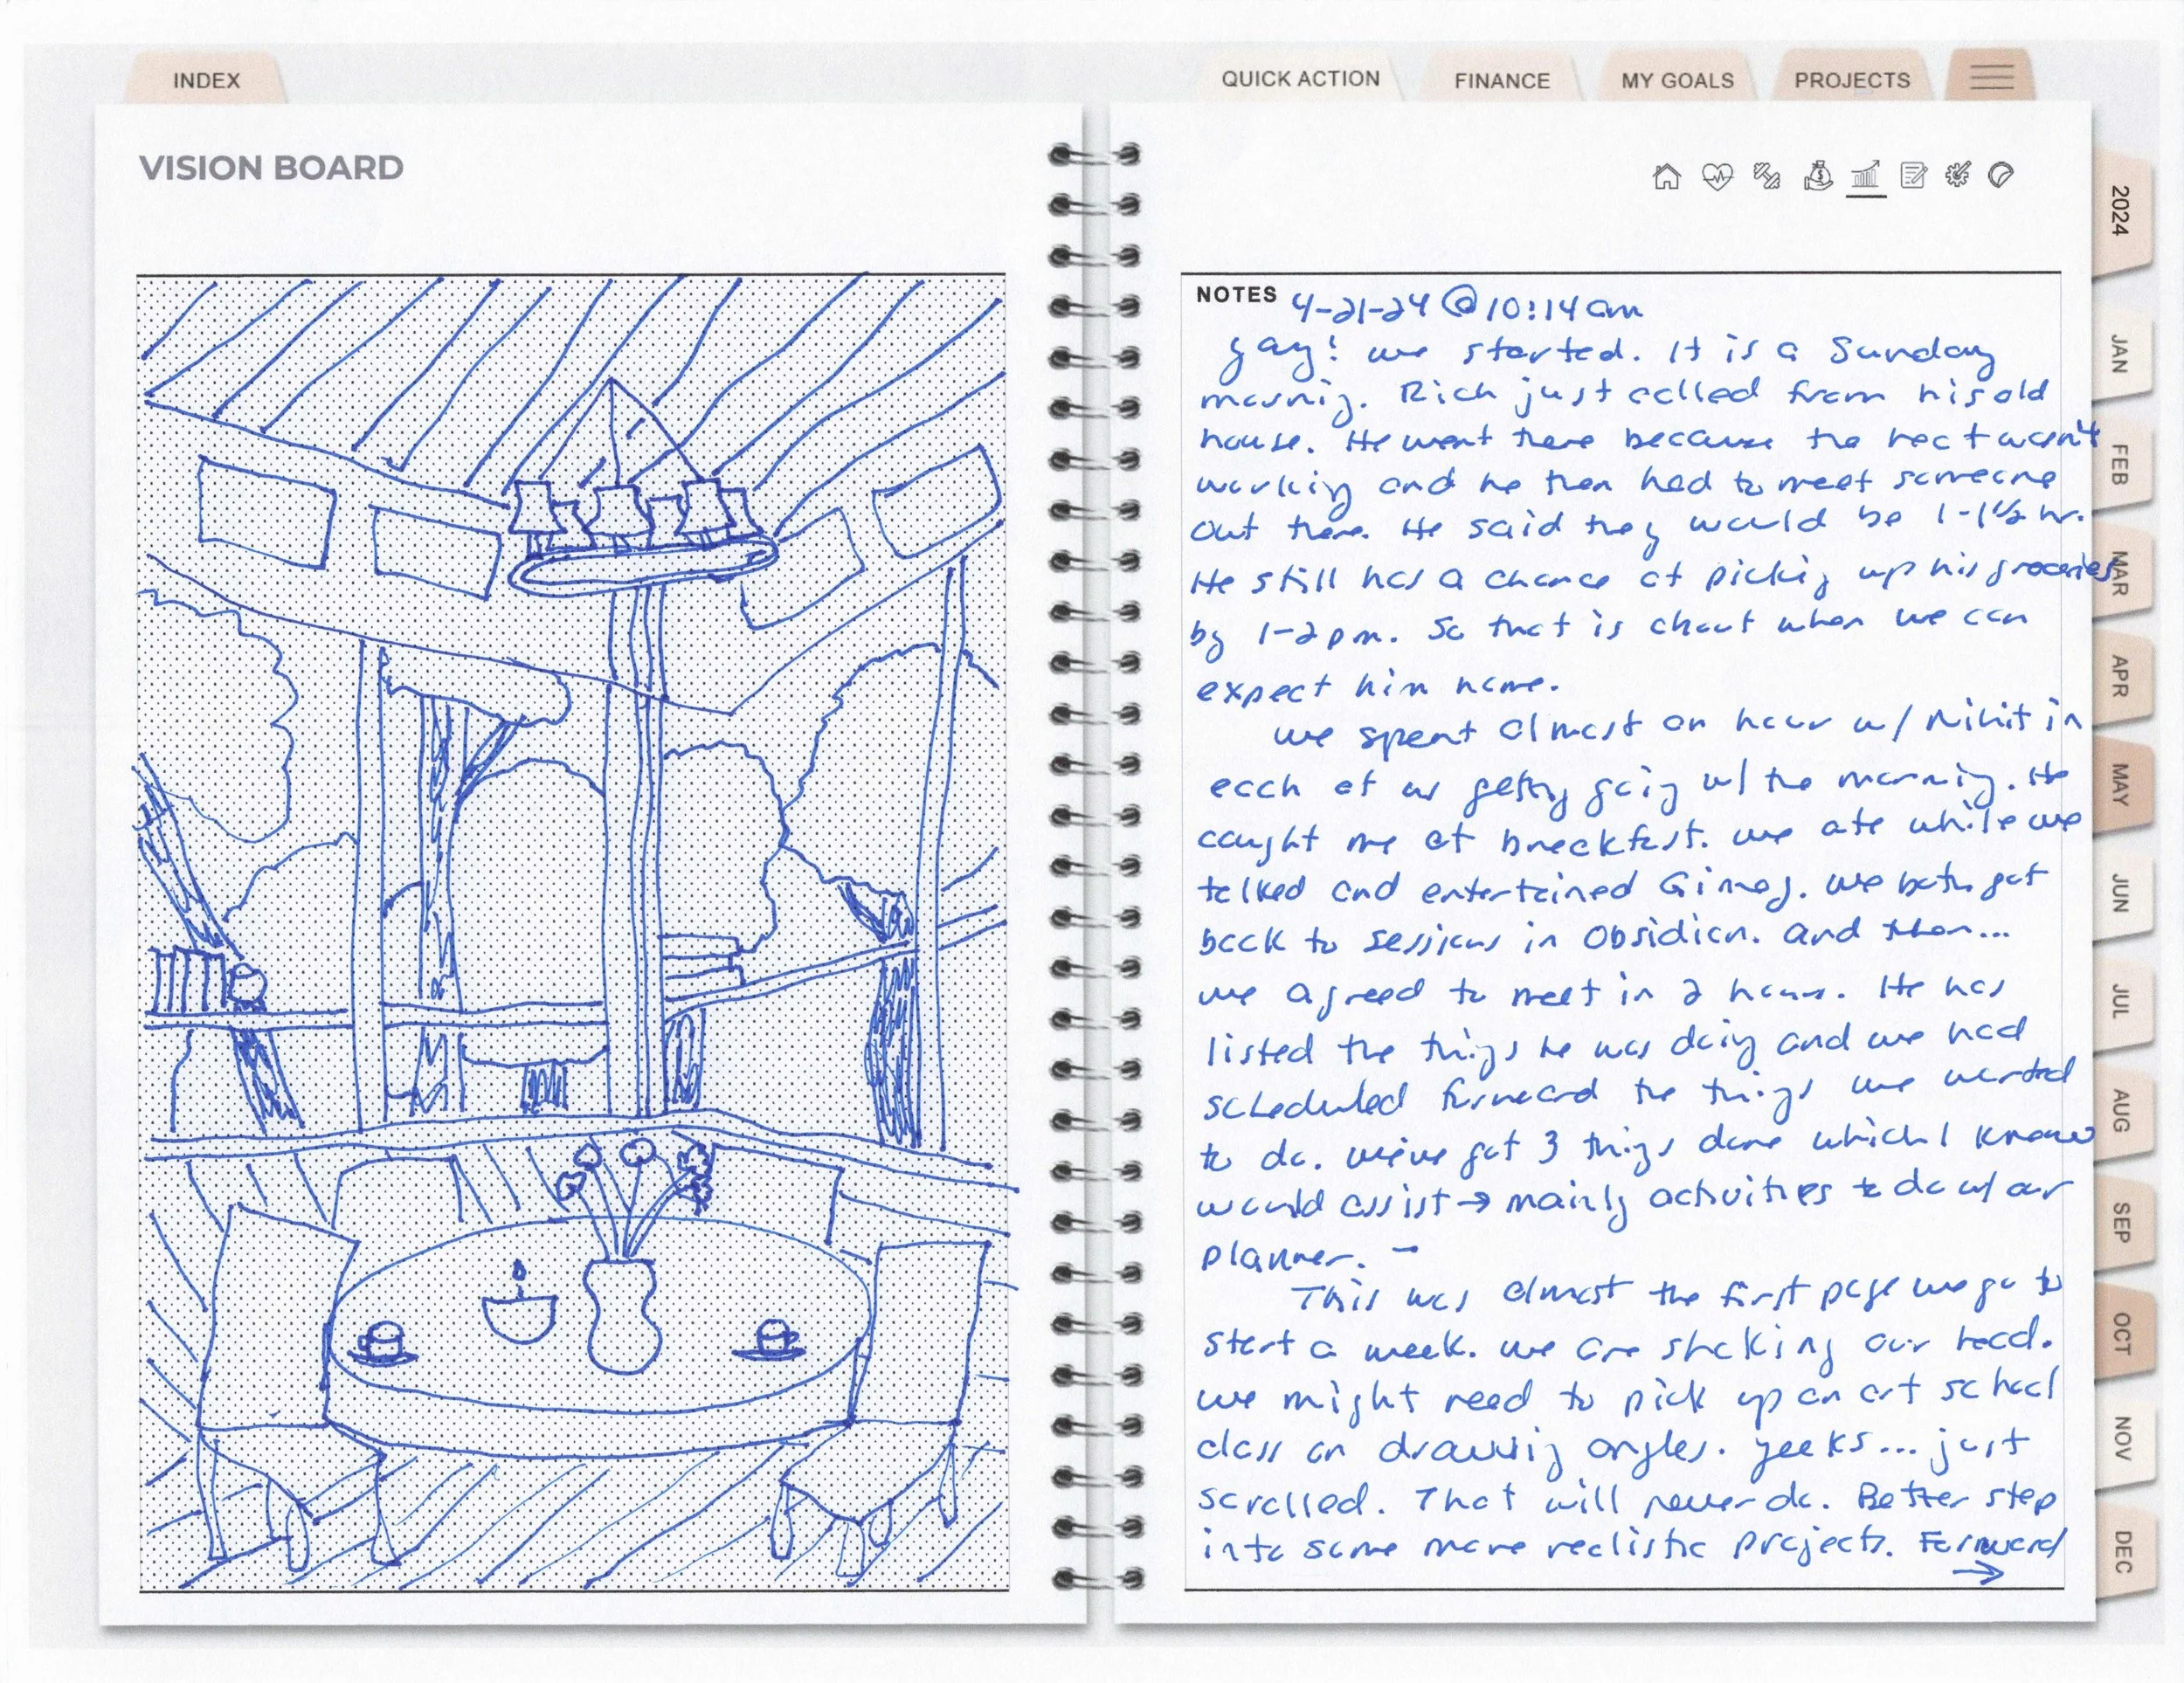 INDEX
QUICK ACTION
FINANCE
MY GOALS
PROJECTS
VISION BOARD
2024
JAN
FEB
MAR
APR
MAY
JUN
JUL
AUG
SEP
OCT
NOV
DEC
NOTES 4-21-24 @ 10:14am
Yay! we started. It is a Sunday
morning. Rich just called from his old
house. He went there because the heat wasn't
working and he then had to meet someone
out there. He said they would be 1-1½ hr.
He still has a chance at picking up his groceries
by 1-2pm. So that is about when we can
expect him home.
we spent almost an hour w/ in
each of us getting going w/ the morning. He
caught me at breakfast. we ate while we
talked and entertained. we both got
back to sessions in Obsidian. and then...
we agreed to meet in 2 hours. He has
listed the things he was doing and we had
scheduled forward the things we wanted
to do. we've got 3 things done which I know
would assist → mainly activities to do w/ our
planner. -
This was almost the first page we go to
start a week. we are shaking our head.
we might need to pick up an art school
class on drawing angles. yeeks... just
scrolled. That will never do. Better step
into some more realistic projects. Forward
→